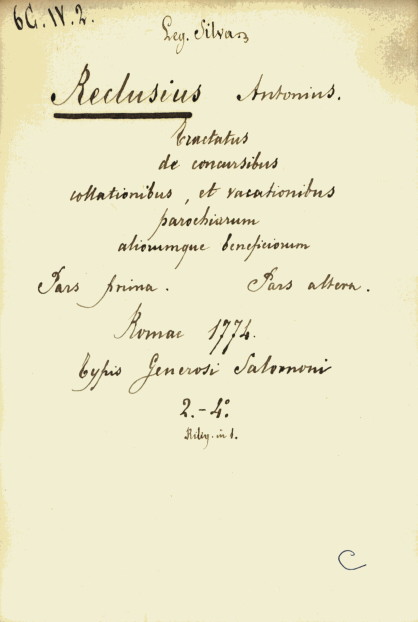 6G.IV.2.
Leg. Silva
Reclusius Antonius.
Tractatus
de concursibus
collationibus, et vacationibus
parochiarum
aliorumque beneficiorum
Pars prima. Pars altera.
Romae 1774.
Typis Generosi Salomoni
2.-4°
in 1.
C